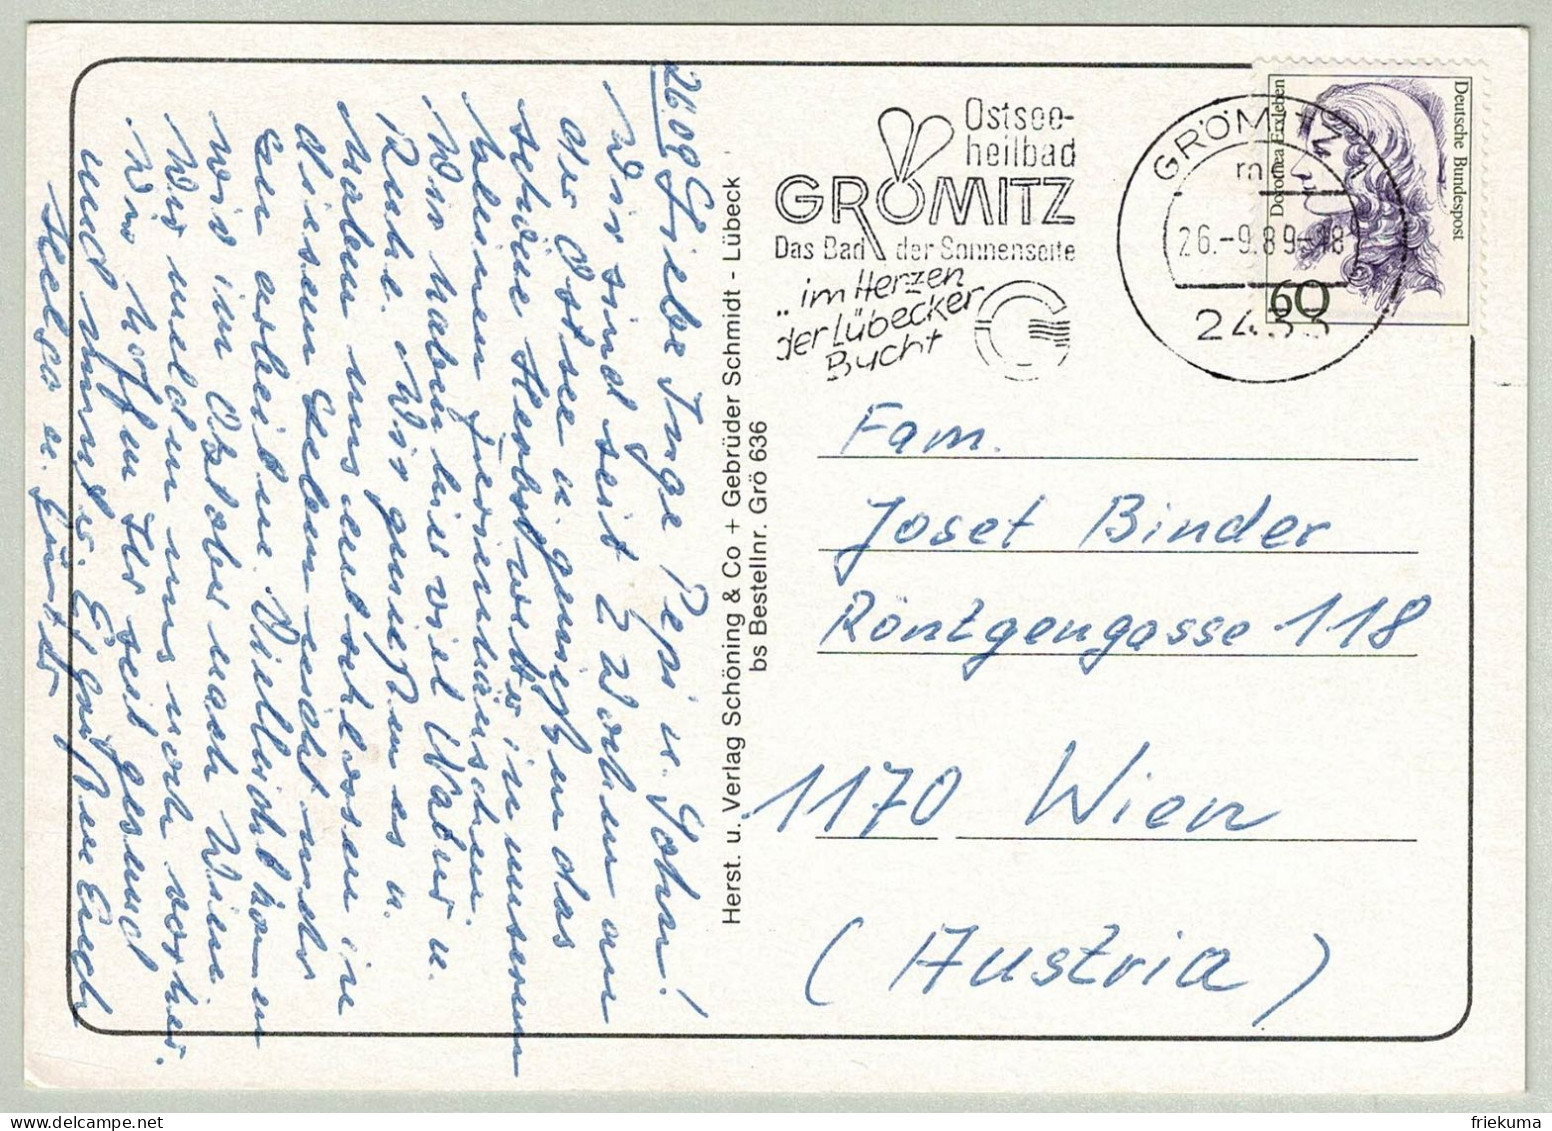 26.09. Liebe Inge Pepi u. Johan!
Wir sind seit 2 Wochen an
der Ostsee u. genießen das
schöne Herbstwetter in unserem
kleinen Ferienhäuschen.
Wir haben hier viel Natur u.
Ruhe. Wir genießen es u.
haben uns entschlossen in
diesem Leben nicht mehr
zu arbeiten. Vielleicht kommen
wir im Oktober nach Wien
Wir melden uns noch vorher.
Wir hoffen Ihr seit gesund
und munter. Es grüßen Euch
Helga u. Günter
Herst. u. Verlag Schöning & Co + Gebrüder Schmidt - Lübeck
bs Bestellnr. Grö 636
Ostsee-
heilbad
GRÖMITZ
Das Bad der Sonnenseite
„im Herzen
der Lübecker
Bucht
GRÖMITZ 1
m
26.-9.89-18
2433
Deutsche Bundespost
Dorothea Erxleben
60
Fam.
Josef Binder
Röntgengasse 118
1170 Wien
(Austria)
friekuma